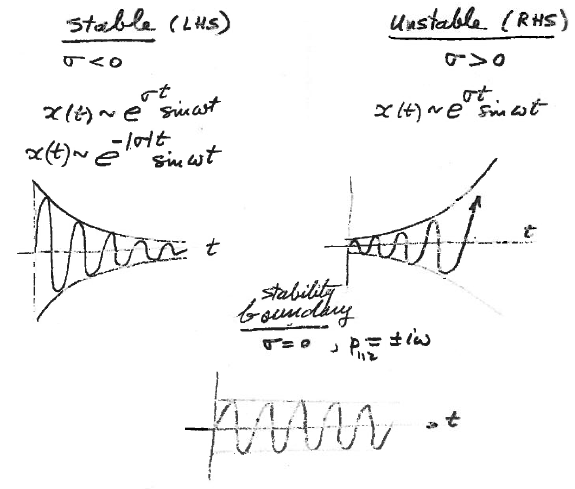 Stable (LHS)
σ < 0
x(t) ~ e^{σt} sin ωt
x(t) ~ e^{-|σ|t} sin ωt
t
Unstable (RHS)
σ > 0
x(t) ~ e^{σt} sin ωt
t
stability
boundary
σ = 0 , p_{1,2} = ± iω
t